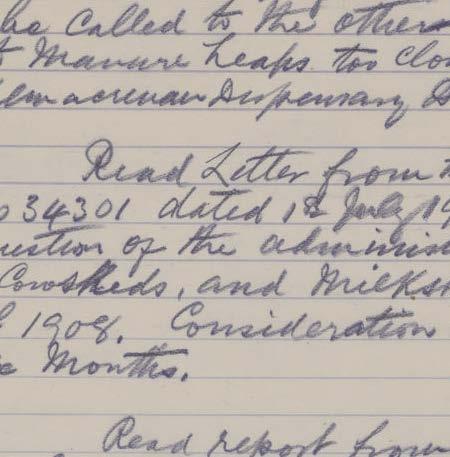 be called to the other
Manure heaps too clo
Dispensary D
Read Letter from
34301 dated 1st July 19
uestion of the adminis
Cowsheds, and Milks
1908. Consideration
Months.
Read report from